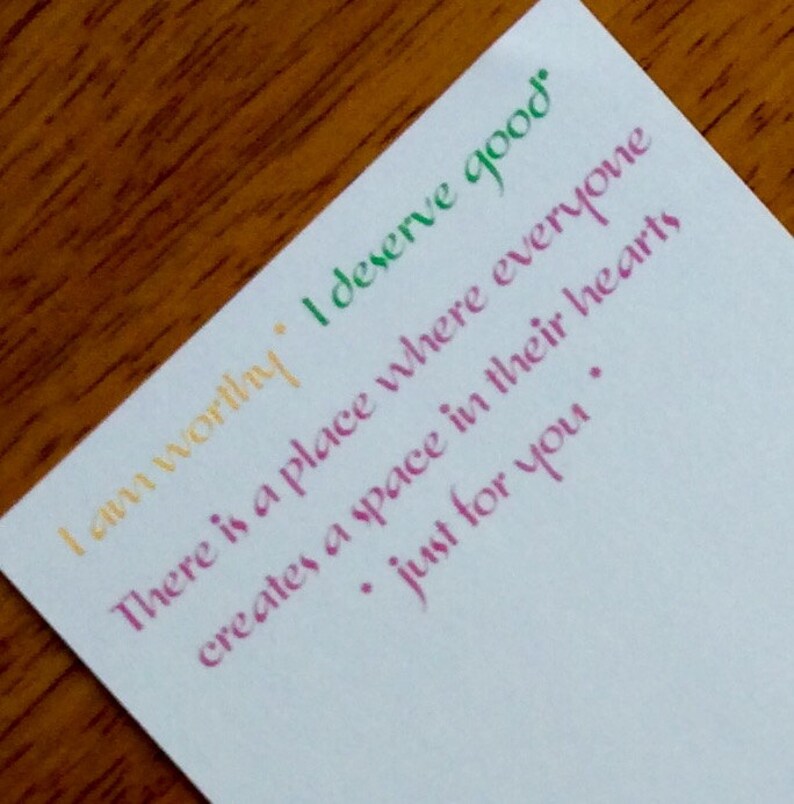 I am worthy * I deserve good*
There is a place where everyone
creates a space in their hearts
* just for you *